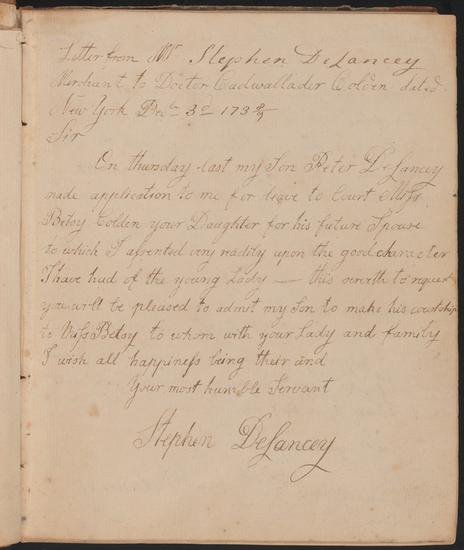 Letter from Mr Stephen DeLancey
Merchant to Doctor Cadwallader Colden dated
New York Decbr 3d 1737
Sir
On thursday last my Son Peter DeLancey
made application to me for leave to Court Miss
Betsy Colden your Daughter for his future Spouse
to which I assented very readily upon the good character
I have had of the young Lady — this serveth to request
you will be pleased to admit my Son to make his courtship
to Miss Betsy to whom with your Lady and family
I wish all happiness being their and
Your most humble Servant
Stephen DeLancey